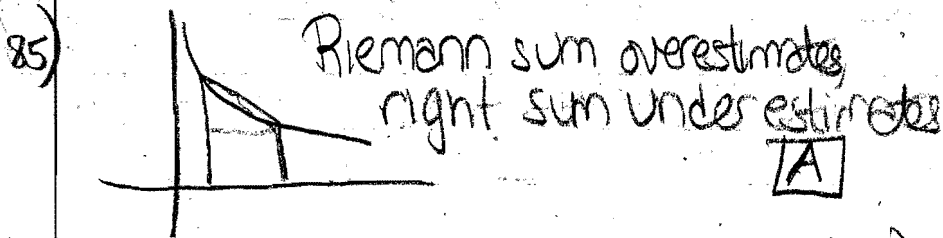 85) Riemann sum overestimates,
right sum underestimates
A